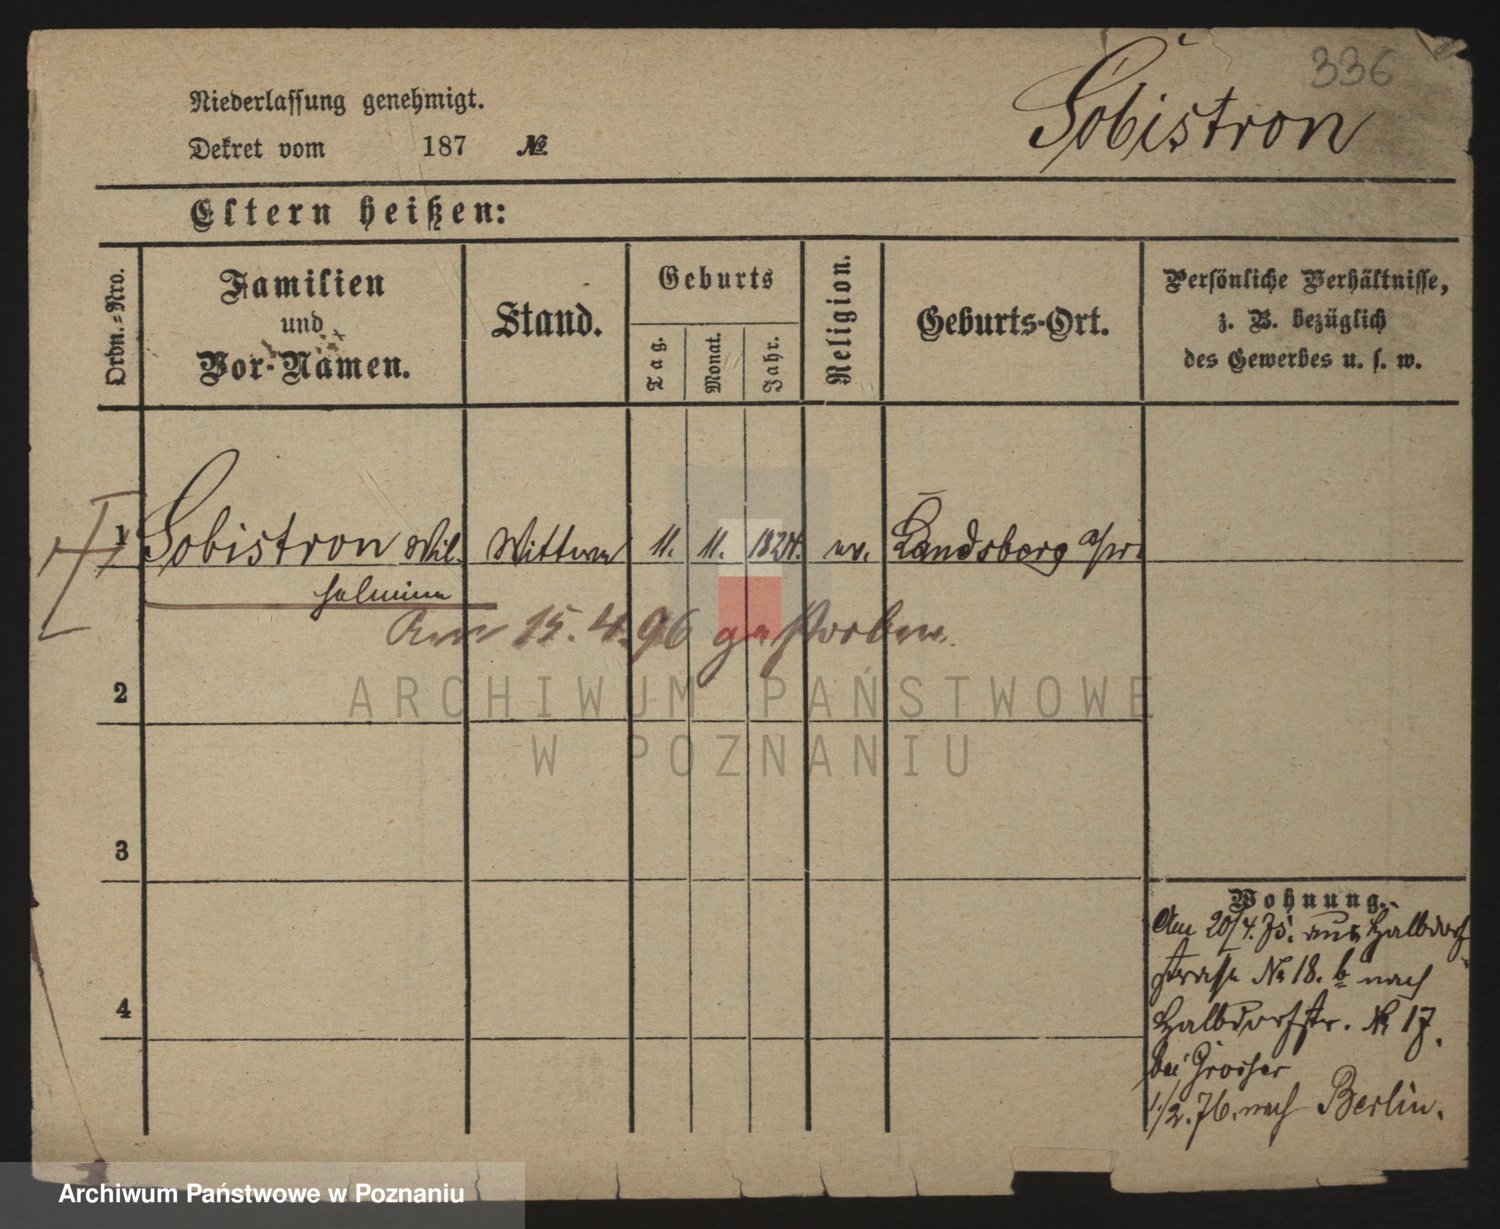 336
Sobistron
Niederlassung genehmigt.
Dekret vom 187 №
Eltern heißen:
Ordn.-Nro.
Familien
und
Vor-Namen.
Stand.
Geburts
Tag.
Monat.
Jahr.
Religion.
Geburts-Ort.
Persönliche Verhältnisse,
z. B. bezüglich
des Gewerbes u. s. w.
1 Sobistron Wil- Wittwe 11. 11. 1824. ev. Landsberg a/w.
helmine
Am 15.4.96 gestorben.
2
3
4
Wohnung.
Am 20/4. 75. aus Halbdorf
straße № 18. b nach
Halbdorfstr. № 17.
bei
1/2. 76. nach Berlin.
ARCHIWUM PAŃSTWOWE
W POZNANIU
Archiwum Państwowe w Poznaniu